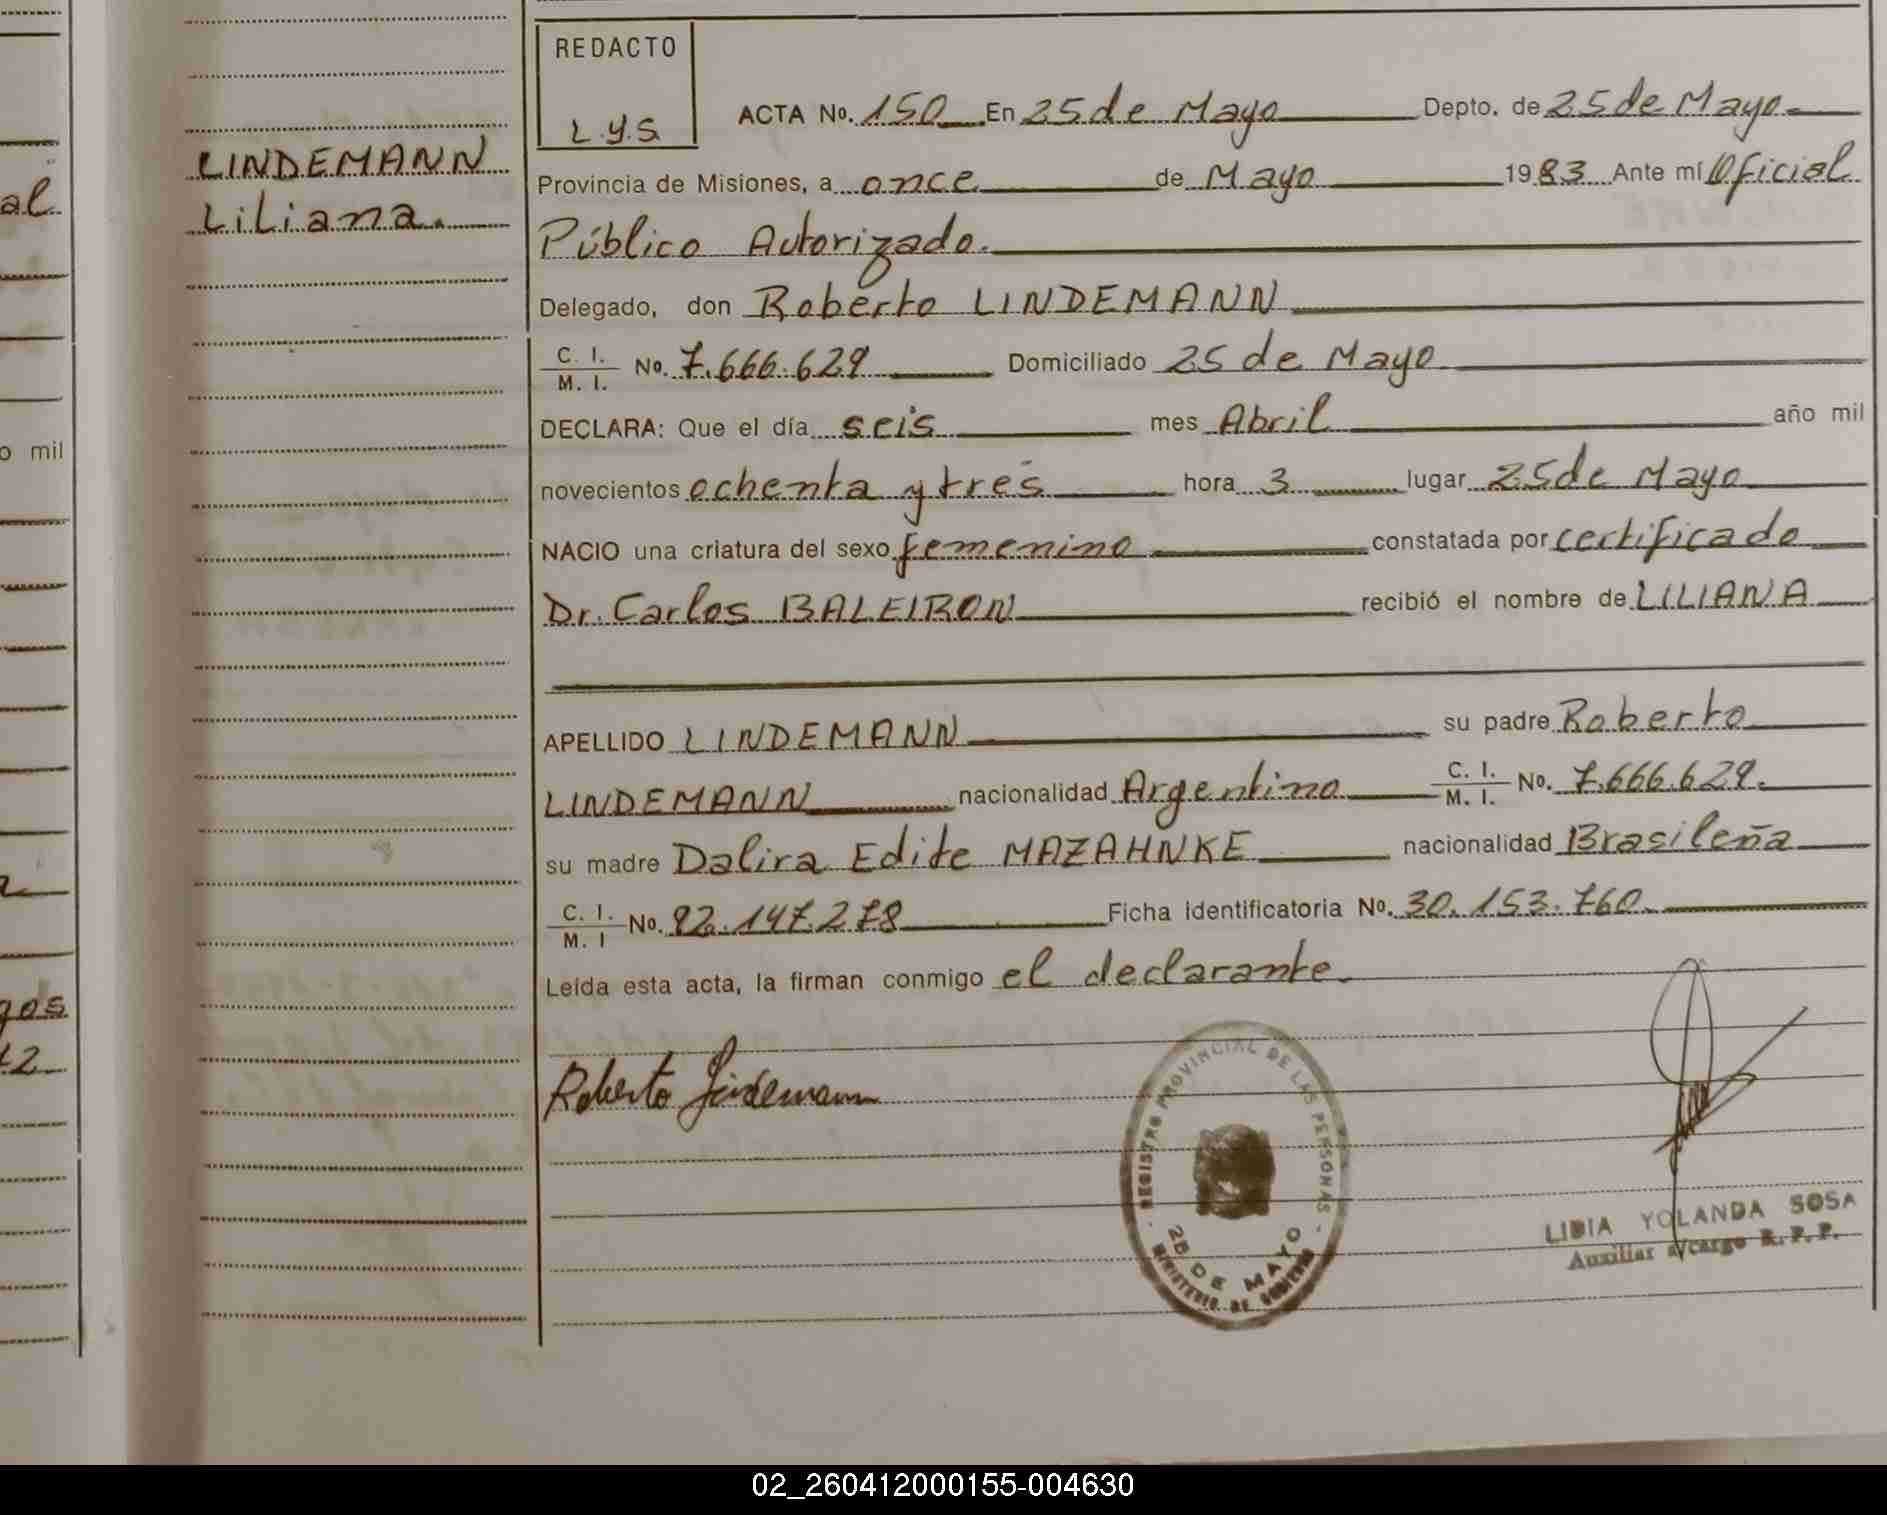 REDACTO
L.Y.S.
ACTA No. 150 En 25 de Mayo Depto. de 25 de Mayo
LINDEMANN
Liliana.
Provincia de Misiones, a once de Mayo 1983 Ante mí Oficial
Público Autorizado.
Delegado, don Roberto LINDEMANN
C. I.
M. I. No. 7.666.629 Domiciliado 25 de Mayo
DECLARA: Que el día seis mes Abril año mil
novecientos ochenta y tres hora 3 lugar 25 de Mayo
NACIO una criatura del sexo femenino constatada por certificado
Dr. Carlos BALEIRON recibió el nombre de LILIANA
APELLIDO LINDEMANN su padre Roberto
LINDEMANN nacionalidad Argentino C. I. M. I. No. 7.666.629.
su madre Dalira Edite MAZAHNKE nacionalidad Brasileña
C. I.
M. I No. 92.147.278 Ficha identificatoria No. 30.153.760.
Leída esta acta, la firman conmigo el declarante.
Roberto Lindemann
REGISTRO PROVINCIAL DE LAS PERSONAS
25 DE MAYO
MINISTERIO DE GOBIERNO
LIDIA YOLANDA SOSA
Auxiliar a/cargo R.P.P.
al
o mil
gos
02_260412000155-004630